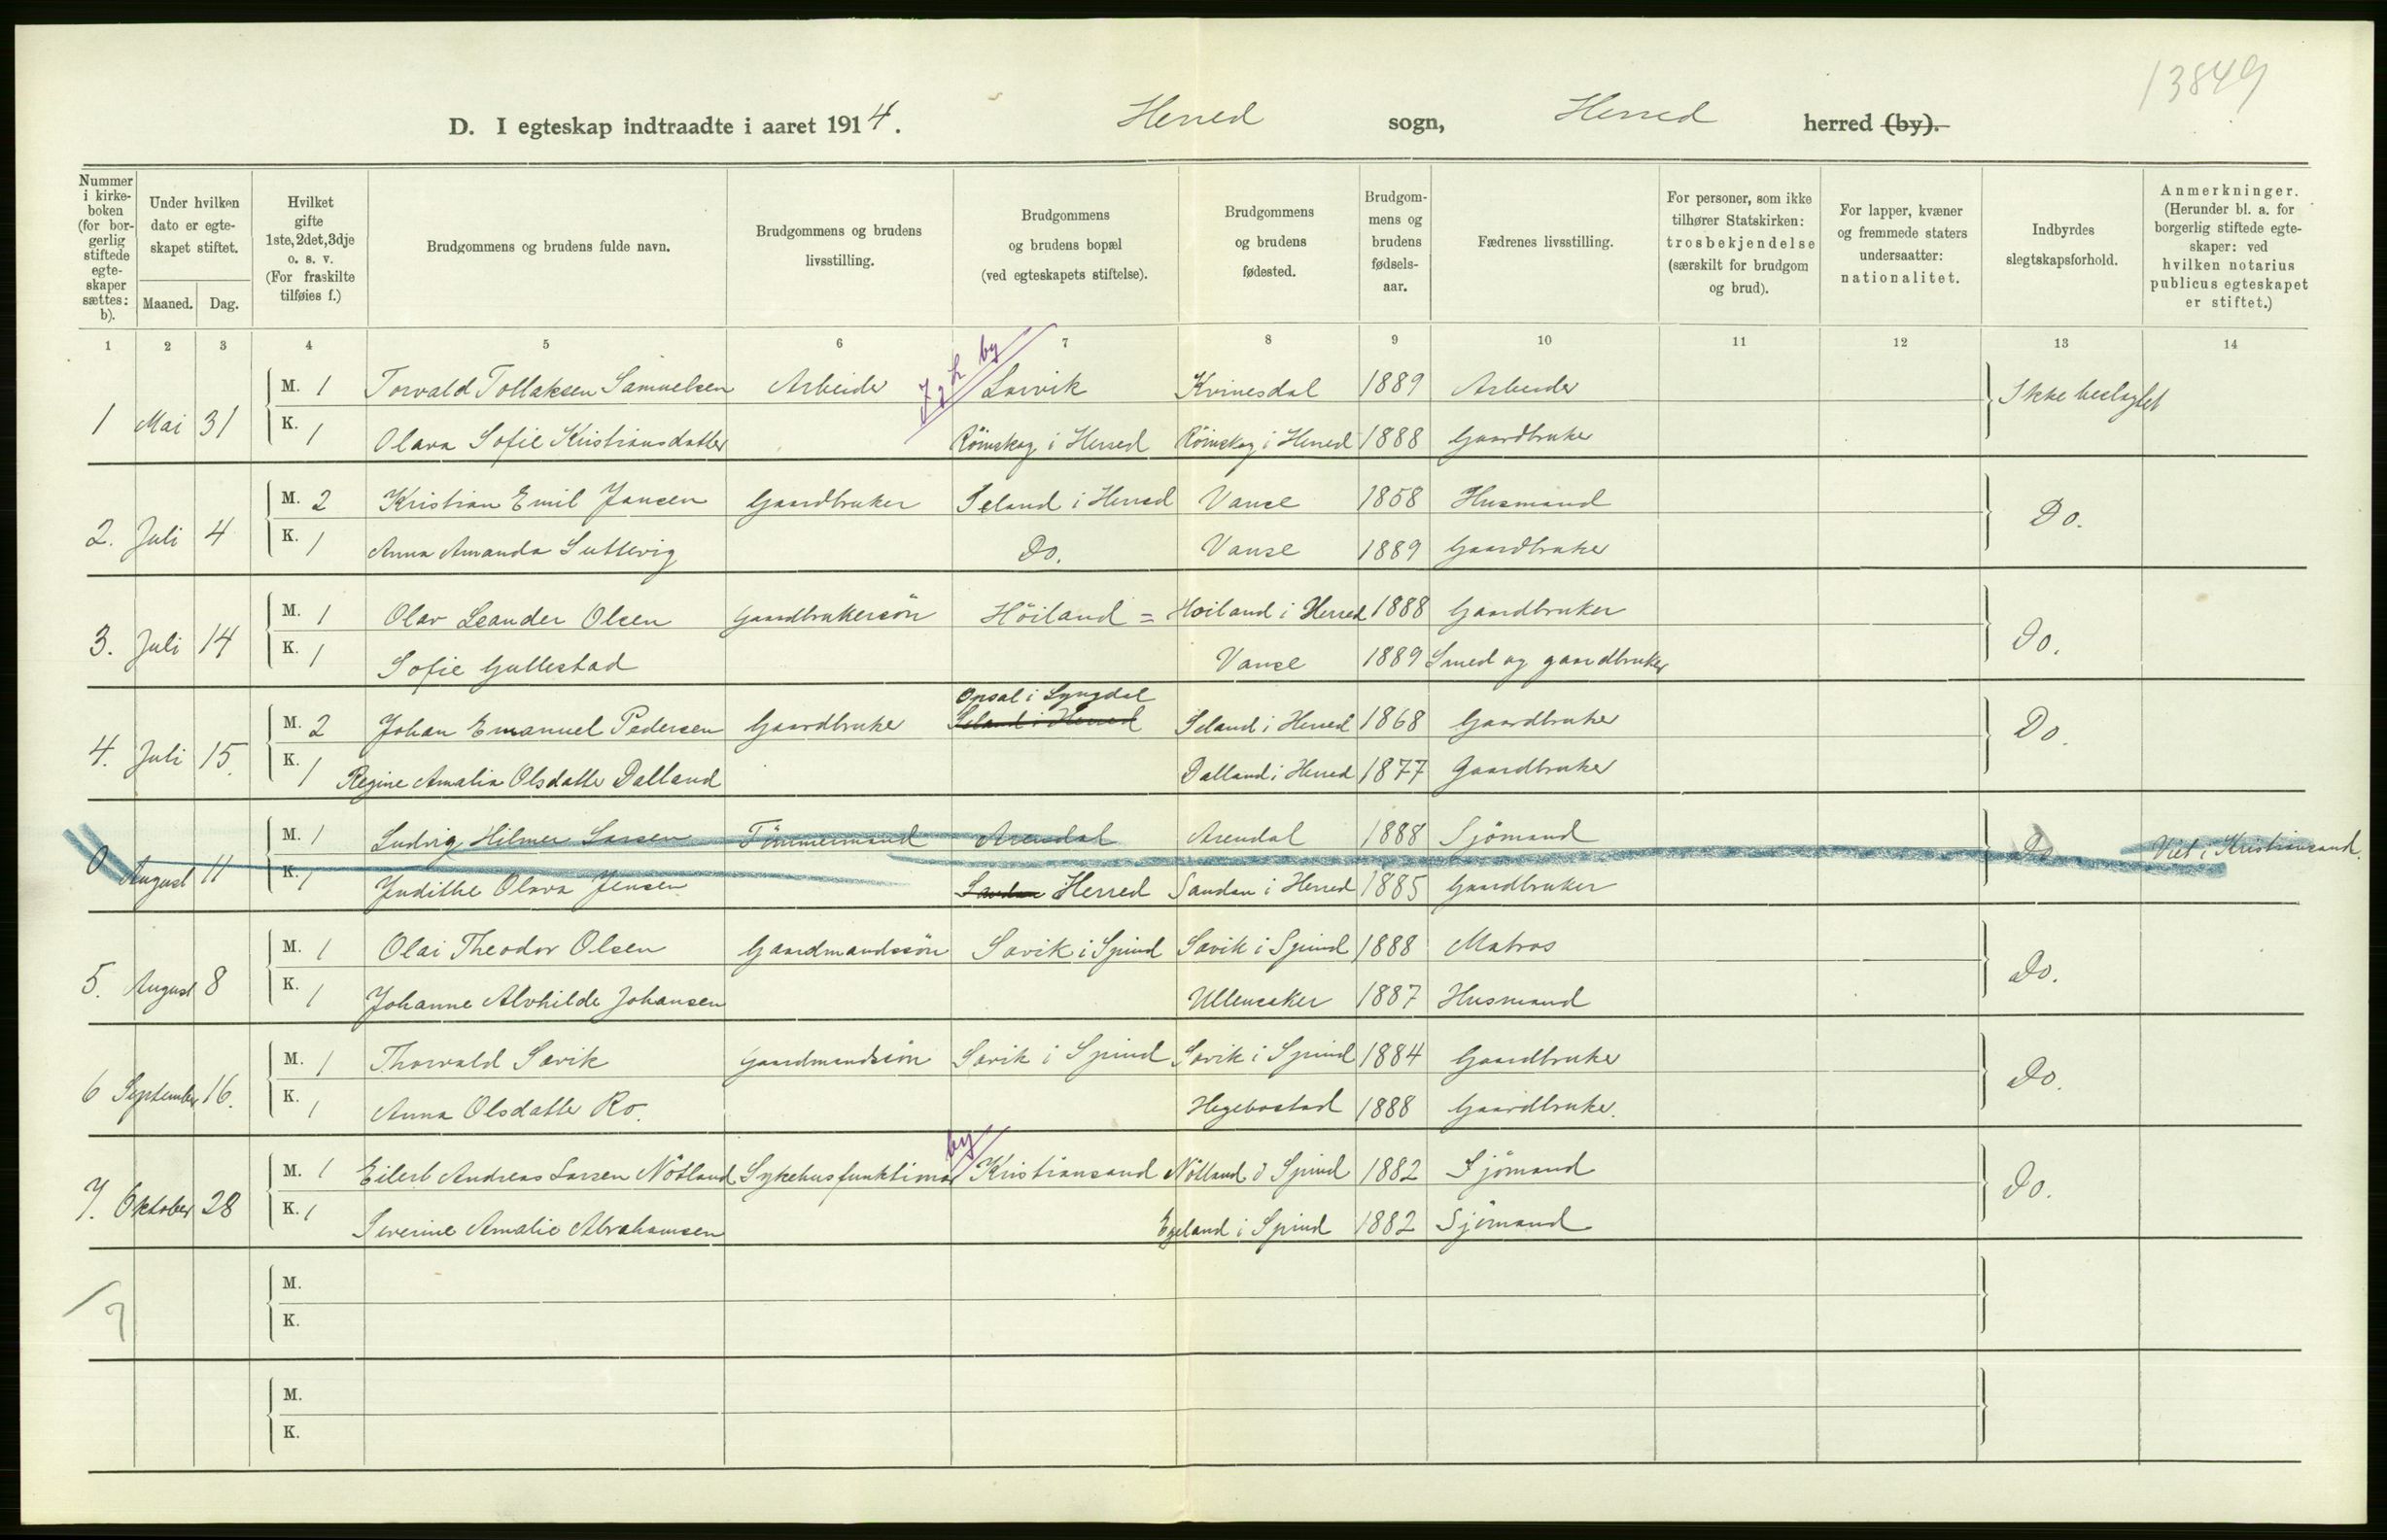 13849
D. I egteskap indtraadte i aaret 1914. Herred sogn, Herred herred (by).
Nummer i kirke-boken (for bor-gerlig stiftede egte-skaper sættes: b).
Under hvilken dato er egte-skapet stiftet.
Maaned. Dag.
Hvilket gifte 1ste, 2det, 3dje o. s. v. (For fraskilte tilføies f.)
Brudgommens og brudens fulde navn.
Brudgommens og brudens livsstilling.
Brudgommens og brudens bopæl (ved egteskapets stiftelse).
Brudgommens og brudens fødested.
Brudgom-mens og brudens fødsels-aar.
Fædrenes livsstilling.
For personer, som ikke tilhører Statskirken: trosbekjendelse (særskilt for brudgom og brud).
For lapper, kvæner og fremmede staters undersaatter: nationalitet.
Indbyrdes slegtskapsforhold.
Anmerkninger. (Herunder bl. a. for borgerlig stiftede egte-skaper: ved hvilken notarius publicus egteskapet er stiftet.)
1 2 3 4 5 6 7 8 9 10 11 12 13 14
by
M. 1 Torvald Tollaksen Samuelsen Arbeider Larvik Kvinesdal 1889 Arbeider
1 Mai 31 Ikke beslægtet
K. 1 Olava Sofie Kristiansdatter Röinskog i Herred Röinskog i Herred 1888 Gaardbruker
M. 2 Kristian Emil Jansen Gaardbruker Seland i Herred Vanse 1858 Husmand
2. Juli 4 Do.
K. 1 Anna Amanda Luttevig Do. Vanse 1889 Gaardbruker
M. 1 Olav Leander Olsen Gaardbrukersön Höiland = Höiland i Herred 1888 Gaardbruker
3. Juli 14 Do.
K. 1 Sofie Gullestad Vanse 1889 Smed og gaardbruker
Opsal i Lyngdal
M. 2 Johan Emanuel Pedersen Gaardbruker Seland i Herred Seland i Herred 1868 Gaardbruker
4. Juli 15. Do.
K. 1 Regine Amalia Olsdatter Dalland Dalland i Herred 1877 Gaardbruker
M. 1 Ludvig Hilmer Larsen Tömmermand Arendal Arendal 1888 Sjömand
0 August 11 Do Viet i Kristiansand.
K. 1 Yndithe Olava Jensen Sandan Herred Sandan i Herred 1885 Gaardbruker
M. 1 Olai Theodor Olsen Gaardmandssön Savik i Spind Savik i Spind 1888 Matros
5. August 8 Do.
K. 1 Johanne Alvhilde Johansen Ullensaker 1887 Husmand
M. 1 Thorvald Savik Gaardmandssön Savik i Spind Savik i Spind 1884 Gaardbruker
6 September 16. Do.
K. 1 Anna Olsdatter Ro. Hegebostad 1888 Gaardbruker.
by
M. 1 Eilert Andreas Larsen Nötland Sykehusfunktionær Kristiansand Nötland i Spind 1882 Sjömand
7. Oktober 28 Do.
K. 1 Severine Amalie Abrahamsen Egeland i Spind 1882 Sjömand
M.
7
K.
M.
K.